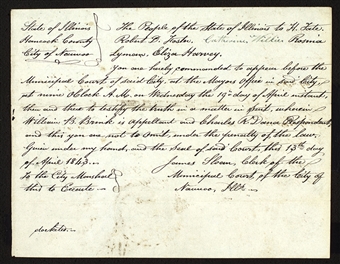 State of Illinois
Hancock County
City of Nauvoo
The People of the State of Illinois to H. Tate,
Robert D. Foster, Catherine Rosina
Lyman, Eliza Harvey,
you are hereby commanded to appear before the
Municipal Court of said City, at the Mayors Office in said City,
at nine O'clock A.M. on Wednesday the 19th day of April instant,
then and there to testify the truth in a matter in suit, wherein
William B. Brink is appelland and Charles R. Dana Respondent,
and this you are not to omit, under the penalty of the law,
Given under my hand, and the Seal of said Court, this 13th day
of April 1843.
James Sloan, Clerk of the
Municipal Court, of the City of
Nauvoo, Ills.
To the City Marshal
this to Execute